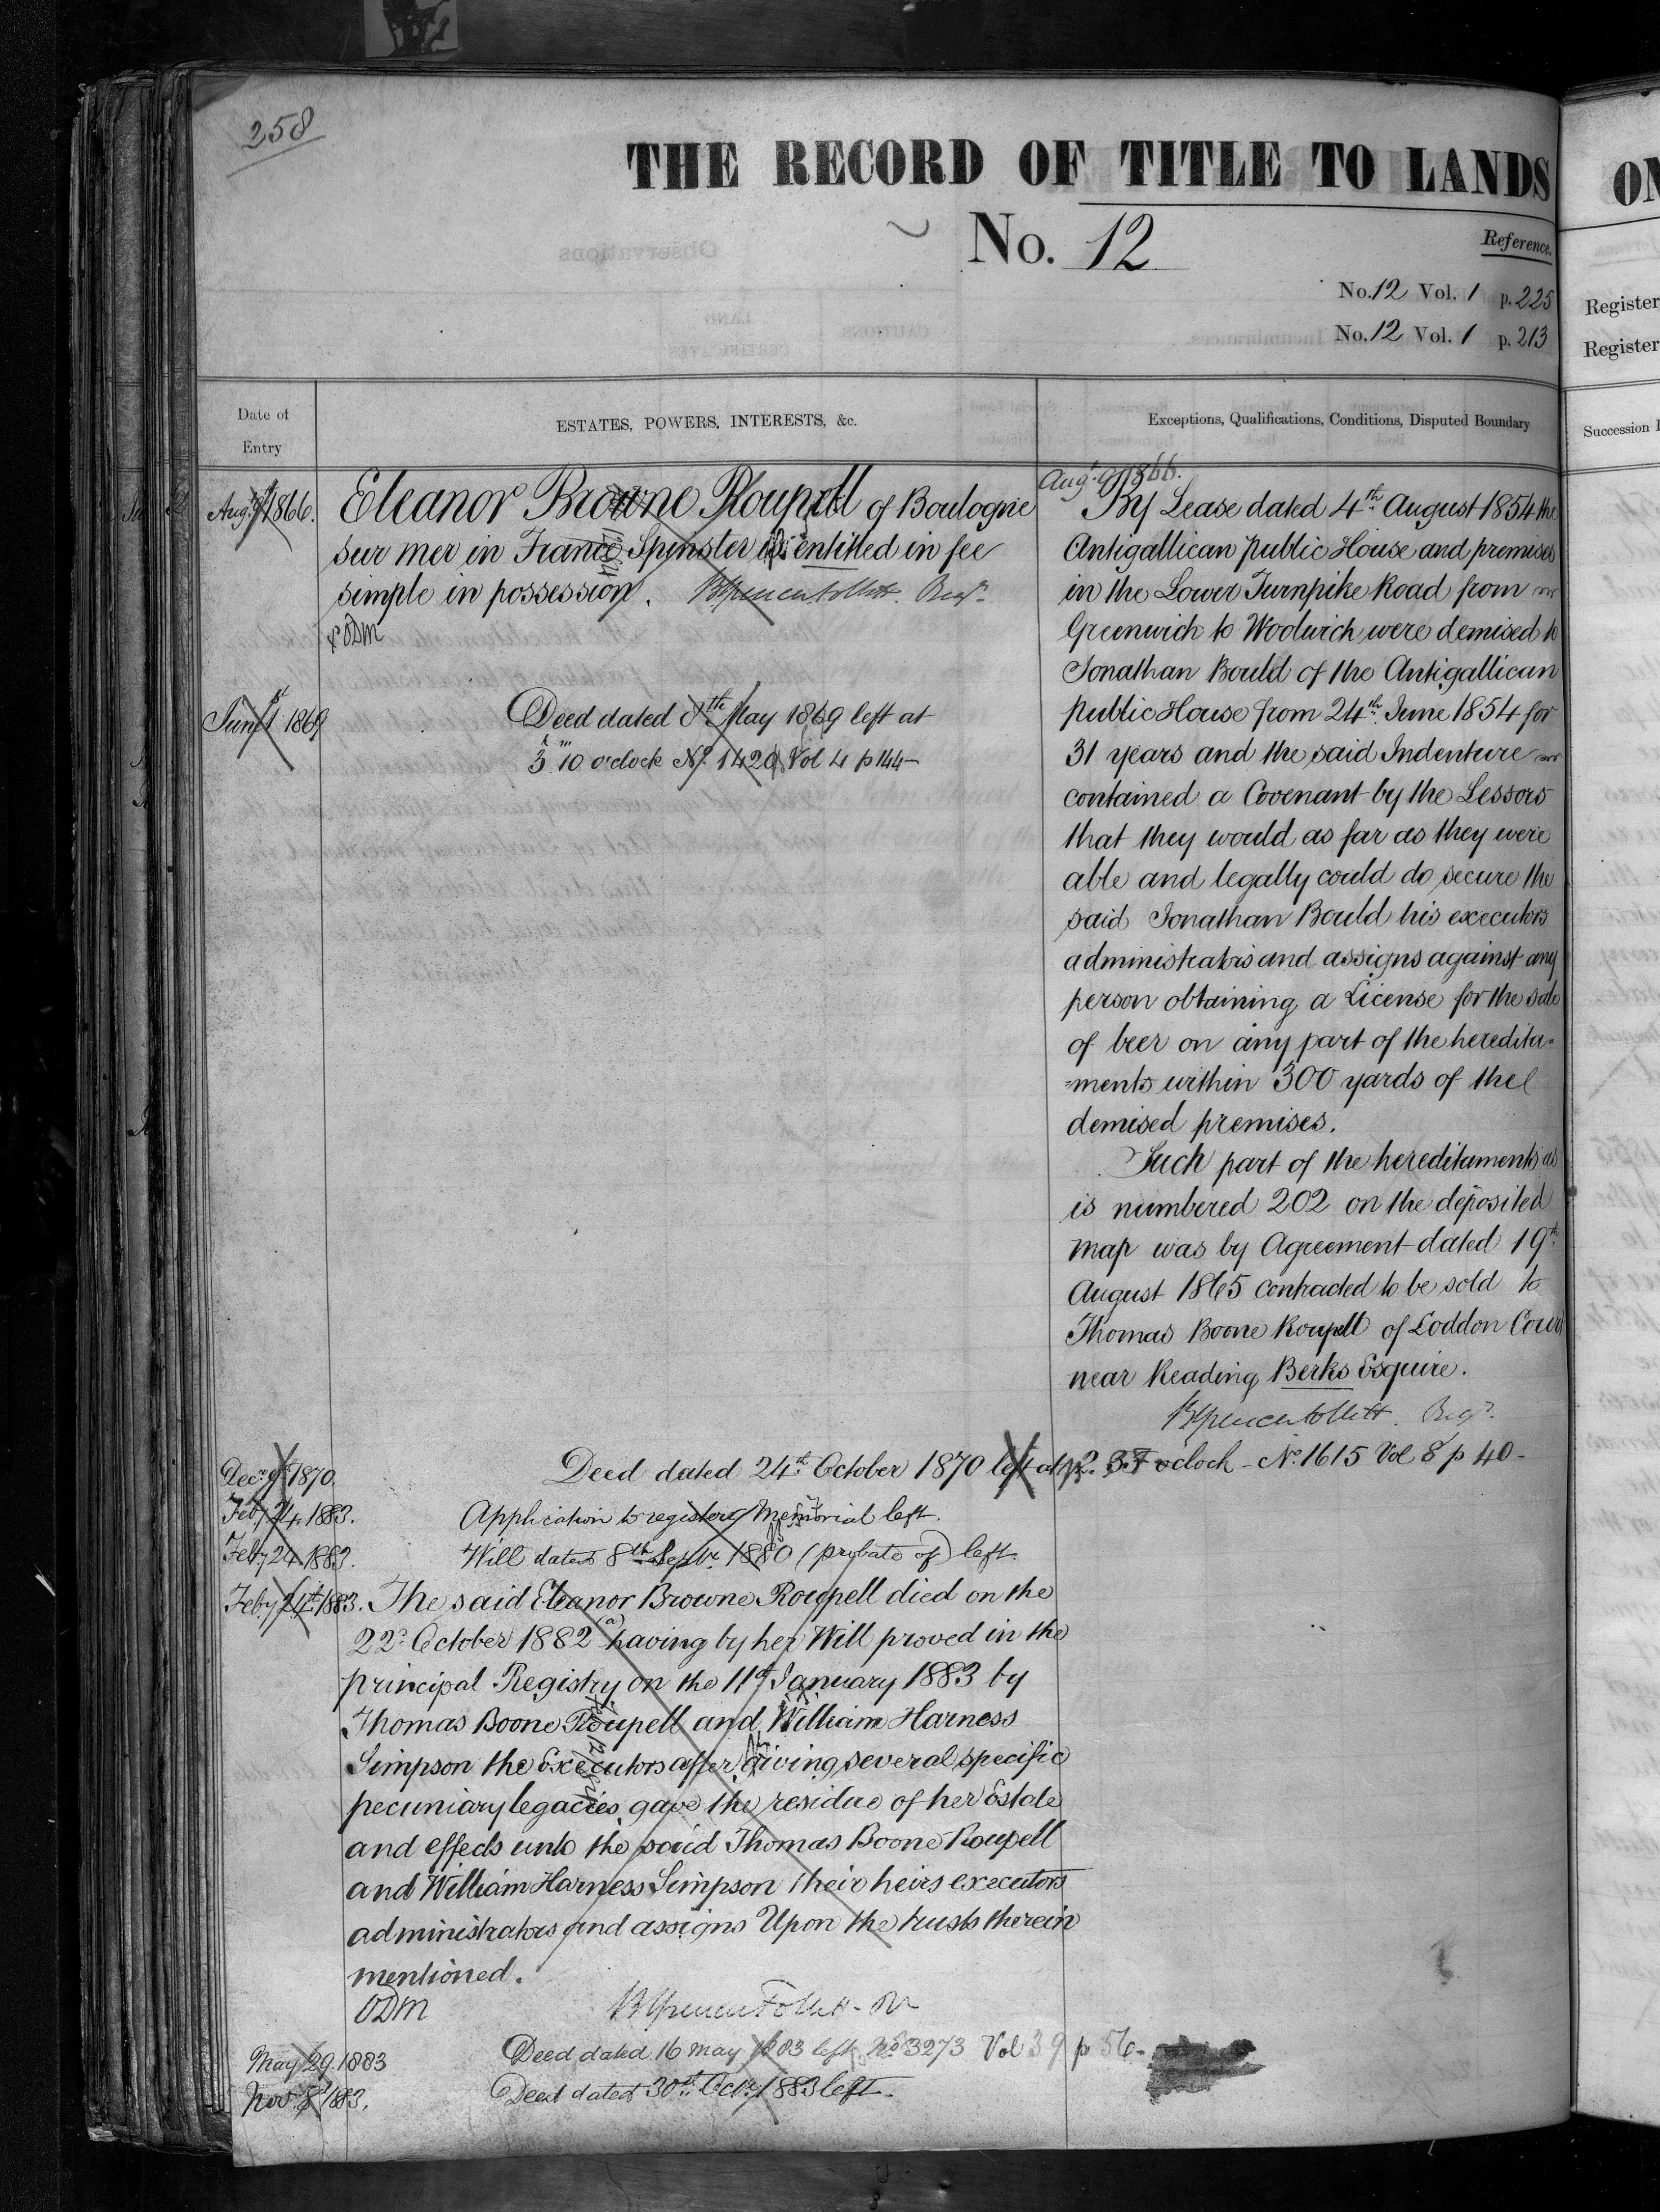 258
THE RECORD OF TITLE TO LANDS
No. 12
Reference.
No. 12 Vol. 1 p. 225
No. 12 Vol. 1 p. 213
Date of
Entry
ESTATES, POWERS, INTERESTS, &c.
Exceptions, Qualifications, Conditions, Disputed Boundary
Augt. 9th 1866.
Eleanor Browne Roupell of Boulogne
sur mer in France Spinster is entitled in fee
simple in possession. B Spencer Follett. Regr.
ODM
June 1st 1869
Deed dated 8th May 1869 left at
3h 10m o'clock No. 1420 Vol 4 p 144-
Augt. 9 1866.
By Lease dated 4th August 1854 the
Antigallican Public House and premises
in the Lower Turnpike Road from
Greenwich to Woolwich were demised to
Jonathan Bould of the Antigallican
Public House from 24th June 1854 for
31 years and the said Indenture
contained a Covenant by the Lessors
that they would as far as they were
able and legally could do secure the
said Jonathan Bould his executors
administrators and assigns against any
person obtaining a License for the sale
of beer on any part of the heredita=
=ments within 300 yards of the
demised premises.
Such part of the hereditaments as
is numbered 202 on the deposited
map was by Agreement dated 19th
August 1865 contracted to be sold to
Thomas Boone Roupell of Loddon Court
near Reading Berks Esquire.
B Spencer Follett. Regr.
Decr. 9th 1870.
Deed dated 24th October 1870 left at 2. 37 oclock - No. 1615 Vol 8 p 40-
Feby 24. 1883.
Application to register Memorial left.
Feby 24 1883.
Will dated 8th Septr. 1880 (probate of) left.
Feby 24th 1883.
The said Eleanor Browne Roupell died on the
22d October 1882 (a) having by her Will proved in the
principal Registry on the 11th January 1883 by
Thomas Boone Roupell and William Harness
Simpson the Executors after giving several specific
pecuniary legacies gave the residue of her Estate
and effects unto the said Thomas Boone Roupell
and William Harness Simpson their heirs executors
administrators and assigns Upon the trusts therein
mentioned.
ODM
B Spencer Follett
May 29. 1883
Deed dated 16 May 1883 left No 3273 Vol 39 p 56-
Nov. 8th 1883.
Deed dated 30th Octr. 1883 left.
ON
Register
Register
Succession